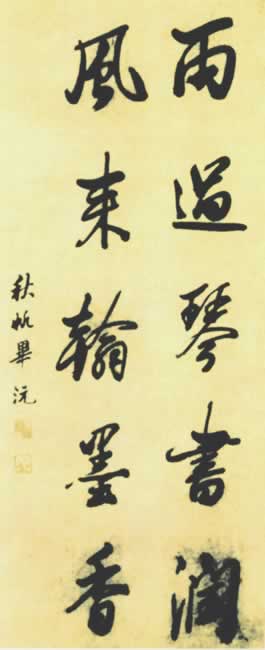 雨過琴書潤
風来翰墨香
秋帆畢沅